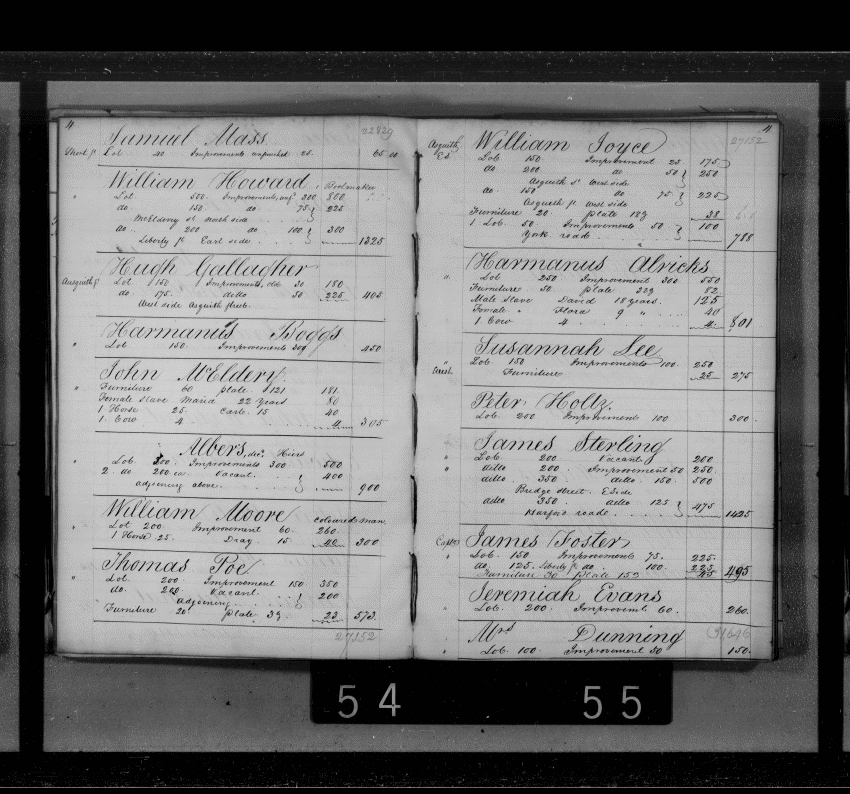 4
22829
Samuel Mass
Short st Lot 40 Improvements unfinished 25 65 00
William Howard, Bootmaker
" Lot. 500 Improvements, unf 300 800
do 150 do 75 } 225
McElderry st North side
do. 200 do 100 } 300
Liberty st East side 1325
Hugh Gallagher
Asquith st Lot 150 Improvements, old 30 180
do 175. ditto 50 225 405
West side Asquith street.
Harmanus Boggs
" Lot 150. Improvements 300 450
John McEldery.
" Furniture 60 plate $121 181.
Female Slave Maria 22 Years 80
1 Horse 25. Cart. 15 40
1 Cow 4 4 305
Albers, decd. Heirs
" Lot 300. Improvements 300 500
2 do 200 ea. Vacant. } 400
adjoining above. 900
William Moore coloured man.
" Lot 200. Improvement 60. 260.
1 Horse 25. Dray 15 40 300
Thomas Poe
" Lot. 200 Improvement 150 350
do. 200 Vacant. } 200
adjoining
" Furniture 20 plate 39 23 573.
27152
4
27152
William Joyce
Asquith Et Lot 150. Improvement 25 175
do 200 do 50 } 250
Asquith st west side
do 150 do 75 } 225
Asquith st west side
Furniture 20 plate 183 38
1 Lot. 50. Improvements 50 } 100
York road 788
Harmanus Alricks
" Lot 250 Improvement 300 550
Furniture 50 plate 329 82
Male Slave David 18 years. 125
Female " Flora 9 " 40
1 Cow 4 4 801
Susannah Lee
" Lot. 150 Improvements 100. 250
Furniture 25 275
Peter Holtz.
Lot. 200 Improvement 100 300.
James Sterling
" Lot. 200 Vacant 200
" ditto 200. Improvement 50 250.
ditto 350 ditto 150. 500
Bridge street. E Side
ditto 350. ditto 125 } 475
Harford road 1425
James Foster
" Lot. 150 Improvements 75. 225.
do. 125. Liberty st do. 100. 225
Furniture 30 plate 152 45 495
Jeremiah Evans
" Lot. 200. Improvemt 60. 260.
Mrs Dunning
" Lot. 100 Improvement 50 150.
54 55